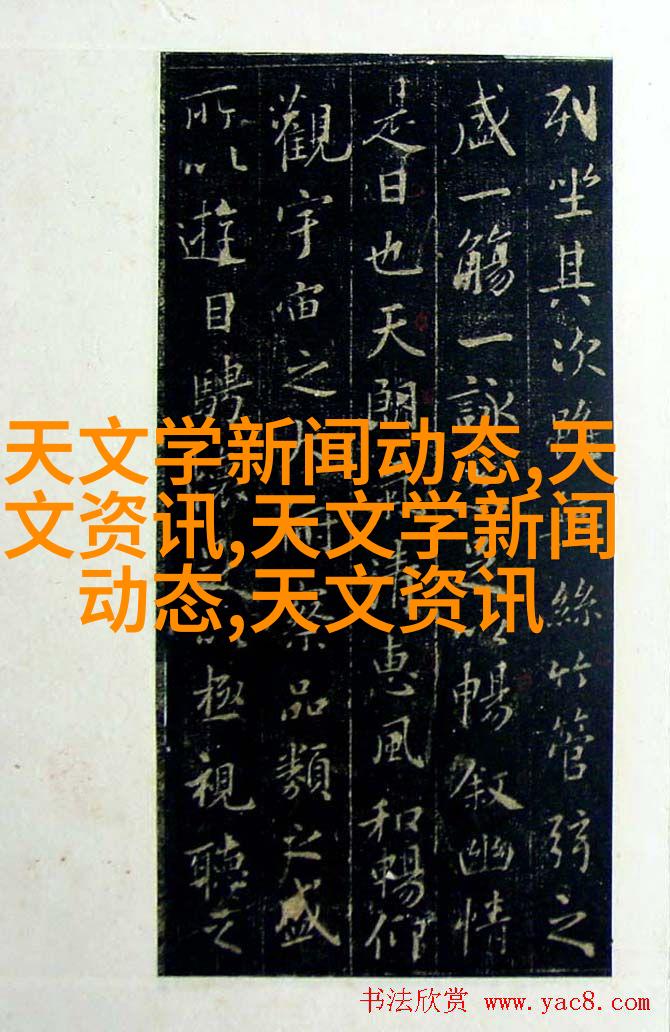 列坐其次雖絲竹管弦之
盛一觴一詠暢叙幽情
是日也天朗清惠風和暢仰
觀宇宙之察品類之盛
所以遊目騁極視聽之
天文学新闻动态,天
文资讯,天文学新闻
动态,天文资讯
书法欣赏 www.yac8.com